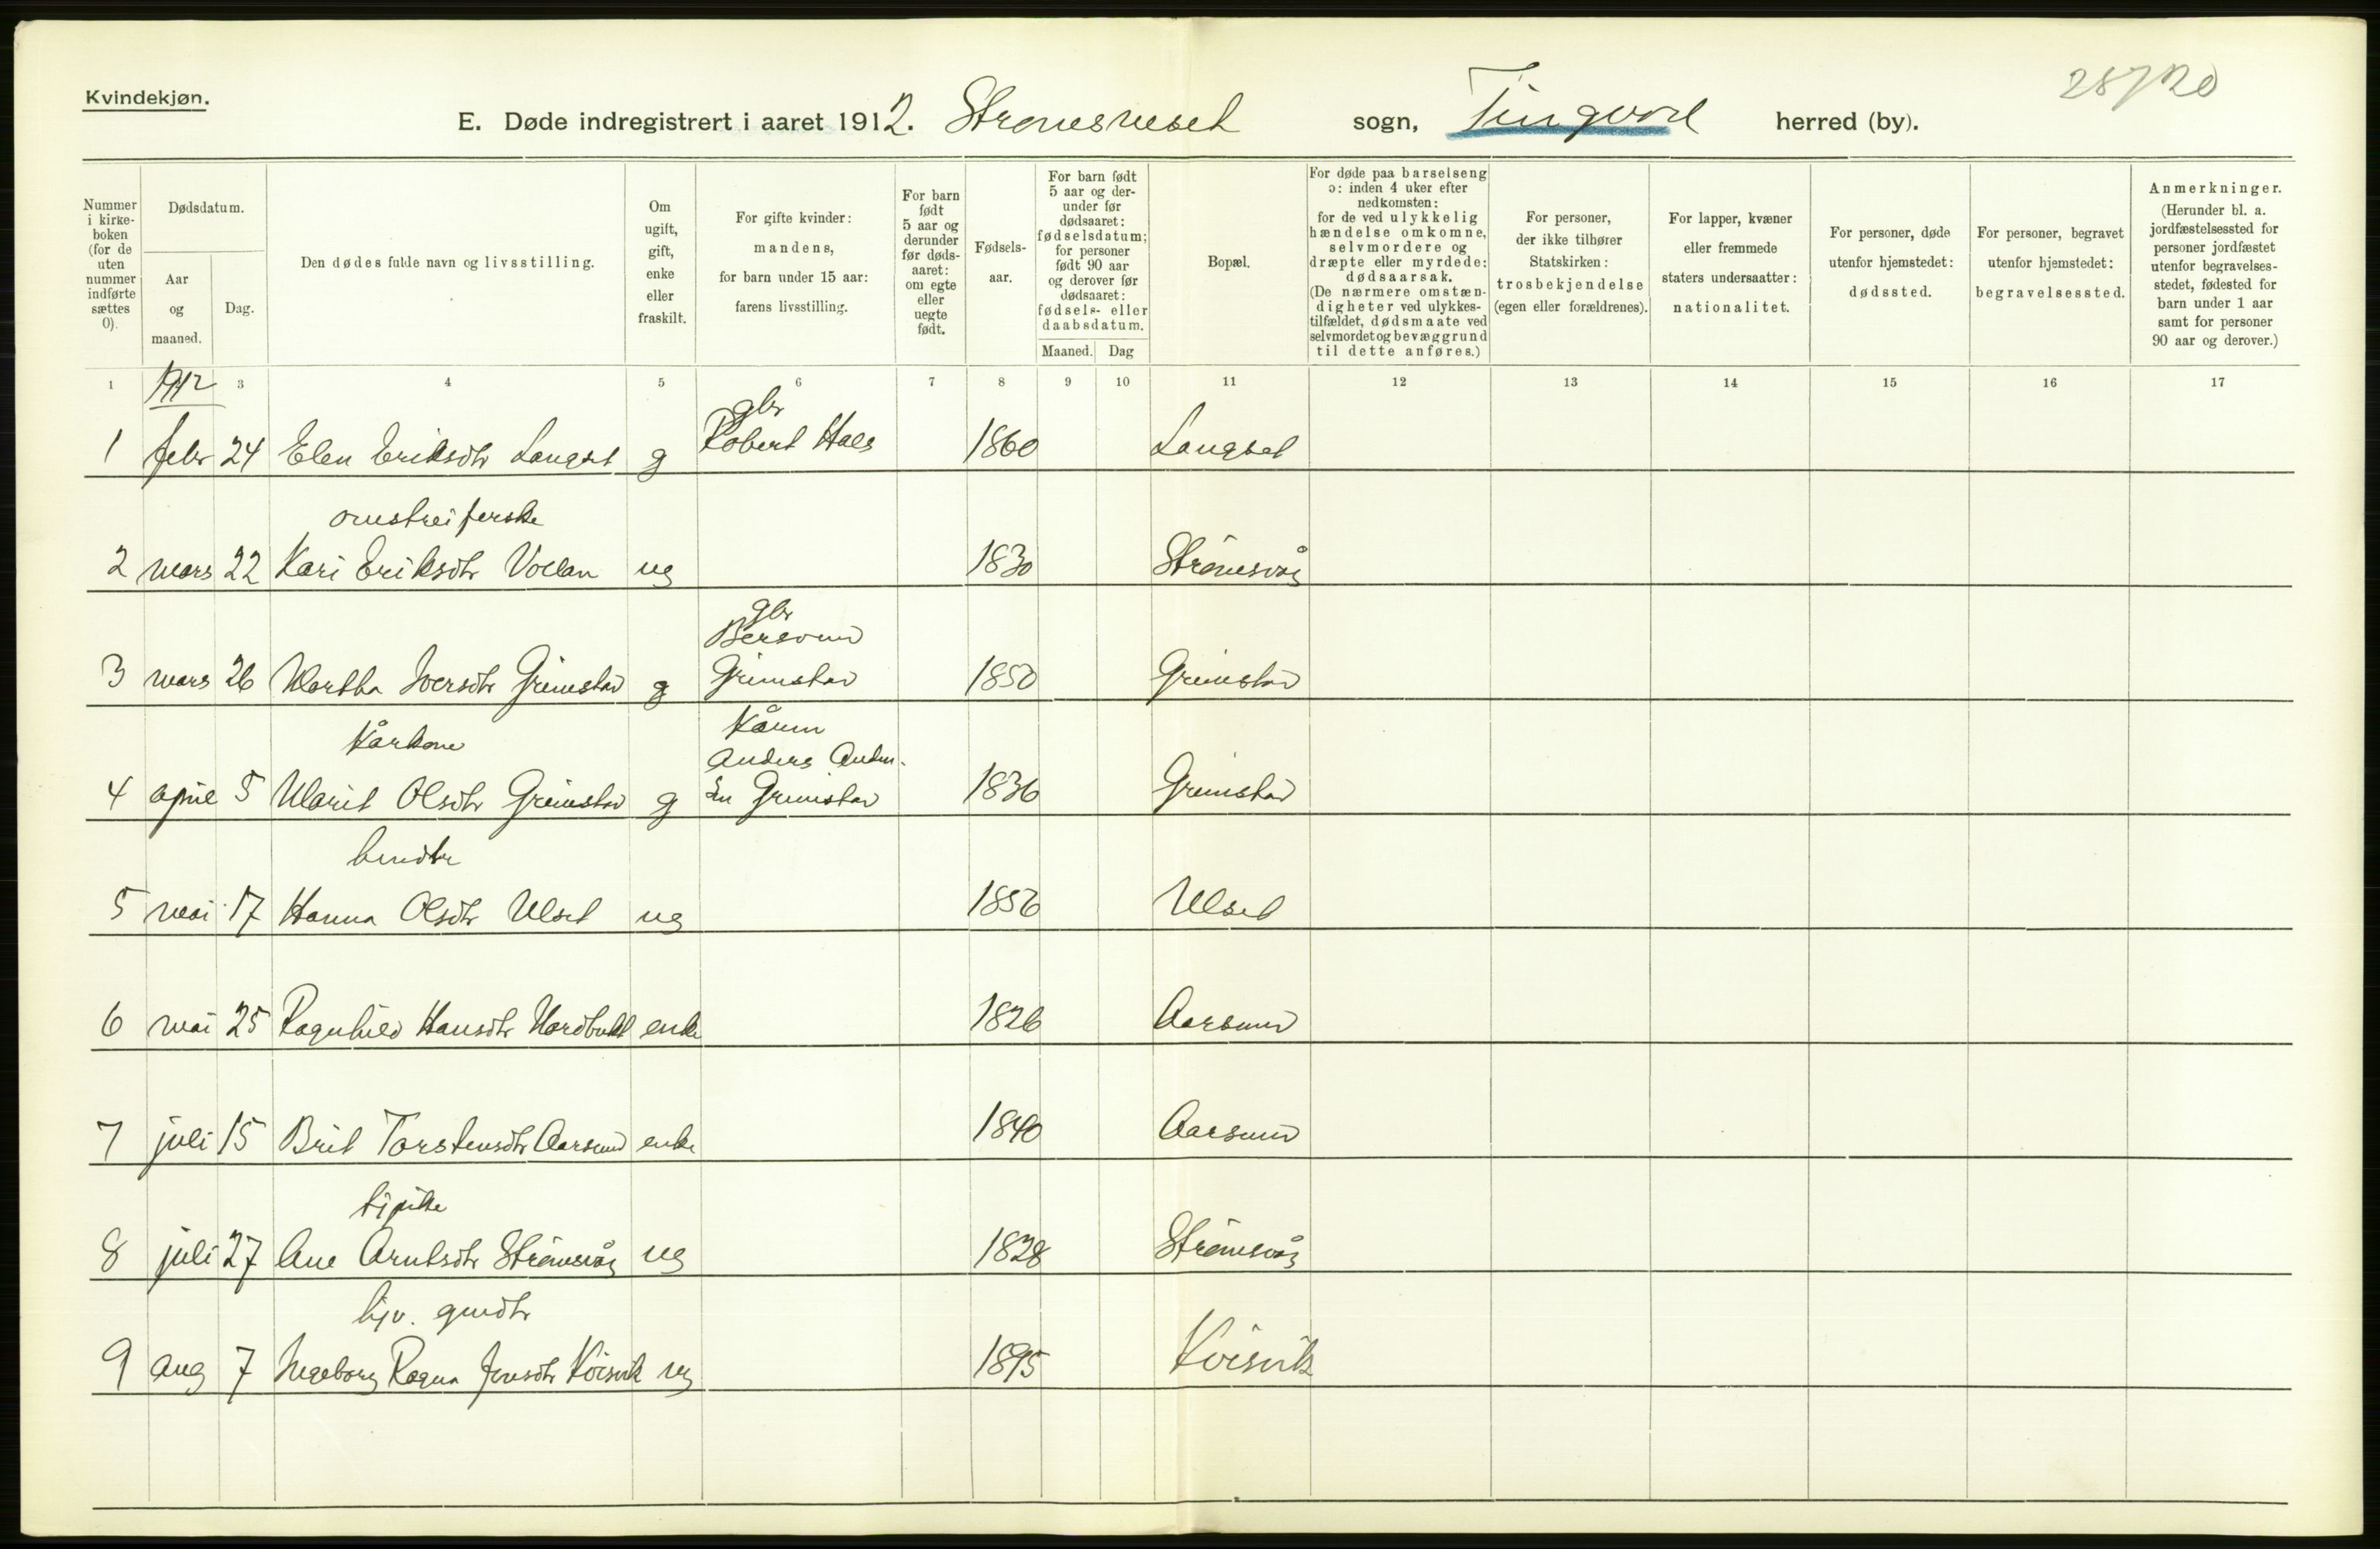 Kvindekjøn.
28720
E. Døde indregistrert i aaret 1912. Strømsneset sogn, Tingvold herred (by).
Nummer i kirke-boken (for de uten nummer indførte sættes 0).
Dødsdatum.
Aar og maaned.
Dag.
Den dødes fulde navn og livsstilling.
Om ugift, gift, enke eller fraskilt.
For gifte kvinder: mandens, for barn under 15 aar: farens livsstilling.
For barn født 5 aar og derunder før døds-aaret: om egte eller uegte født.
Fødsels-aar.
For barn født 5 aar og der-under før dødsaaret: fødselsdatum; for personer født 90 aar og derover før dødsaaret: fødsels- eller daabsdatum.
Maaned. Dag
Bopæl.
For døde paa barselseng ɔ: inden 4 uker efter nedkomsten: for de ved ulykkelig hændelse omkomne, selvmordere og dræpte eller myrdede: dødsaarsak. (De nærmere omstæn-digheter ved ulykkes-tilfældet, dødsmaate ved selvmordet og bevæggrund til dette anføres.)
For personer, der ikke tilhører Statskirken: trosbekjendelse (egen eller forældrenes).
For lapper, kvæner eller fremmede staters undersaatter: nationalitet.
For personer, døde utenfor hjemstedet: dødssted.
For personer, begravet utenfor hjemstedet: begravelsessted.
Anmerkninger. (Herunder bl. a. jordfæstelsessted for personer jordfæstet utenfor begravelses-stedet, fødested for barn under 1 aar samt for personer 90 aar og derover.)
1 1912 3 4 5 6 7 8 9 10 11 12 13 14 15 16 17
gbr
1 febr 24 Elen Eriksdtr Langset g Robert Hals 1860 Langset
omstreiferske
2 mars 22 Kari Eriksdtr Vollan ug 1830 Strømsvåg
gbr
Bersvend
3 mars 26 Martha Iversdtr Grimstad g Grimstad 1850 Grimstad
Kårkone Kårm
Anders Ander-
4 april 5 Marit Olsdtr Grimstad g sen Grimstad 1836 Grimstad
5 mai 17 Hanna Olsdtr Ulset ug 1856 Ulset
6 mai 25 Ragnhild Hansdtr Nordbukt enke 1826 Aarsund
7 juli 15 Brit Torstensdtr Aarsund enke 1840 Aarsund
tjpike
8 juli 27 Ane Arntsdtr Strømsvåg ug 1828 Strømsvåg
hjv. gmdtr
9 aug 7 Ingeborg Ragna Jensdtr Koisvik ug 1895 Koisvik